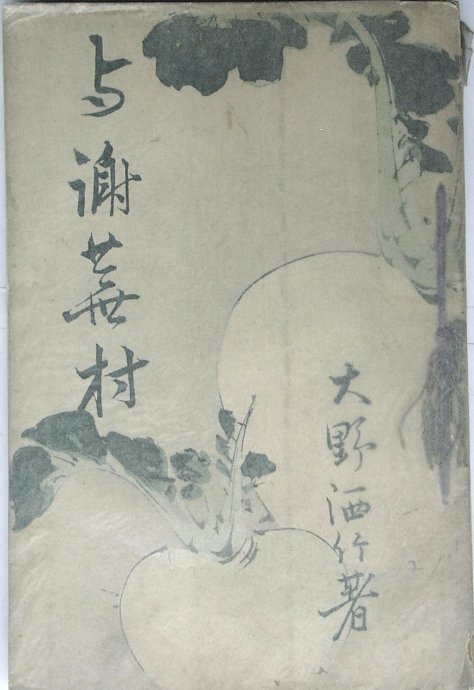 与謝蕪村
大野洒竹著